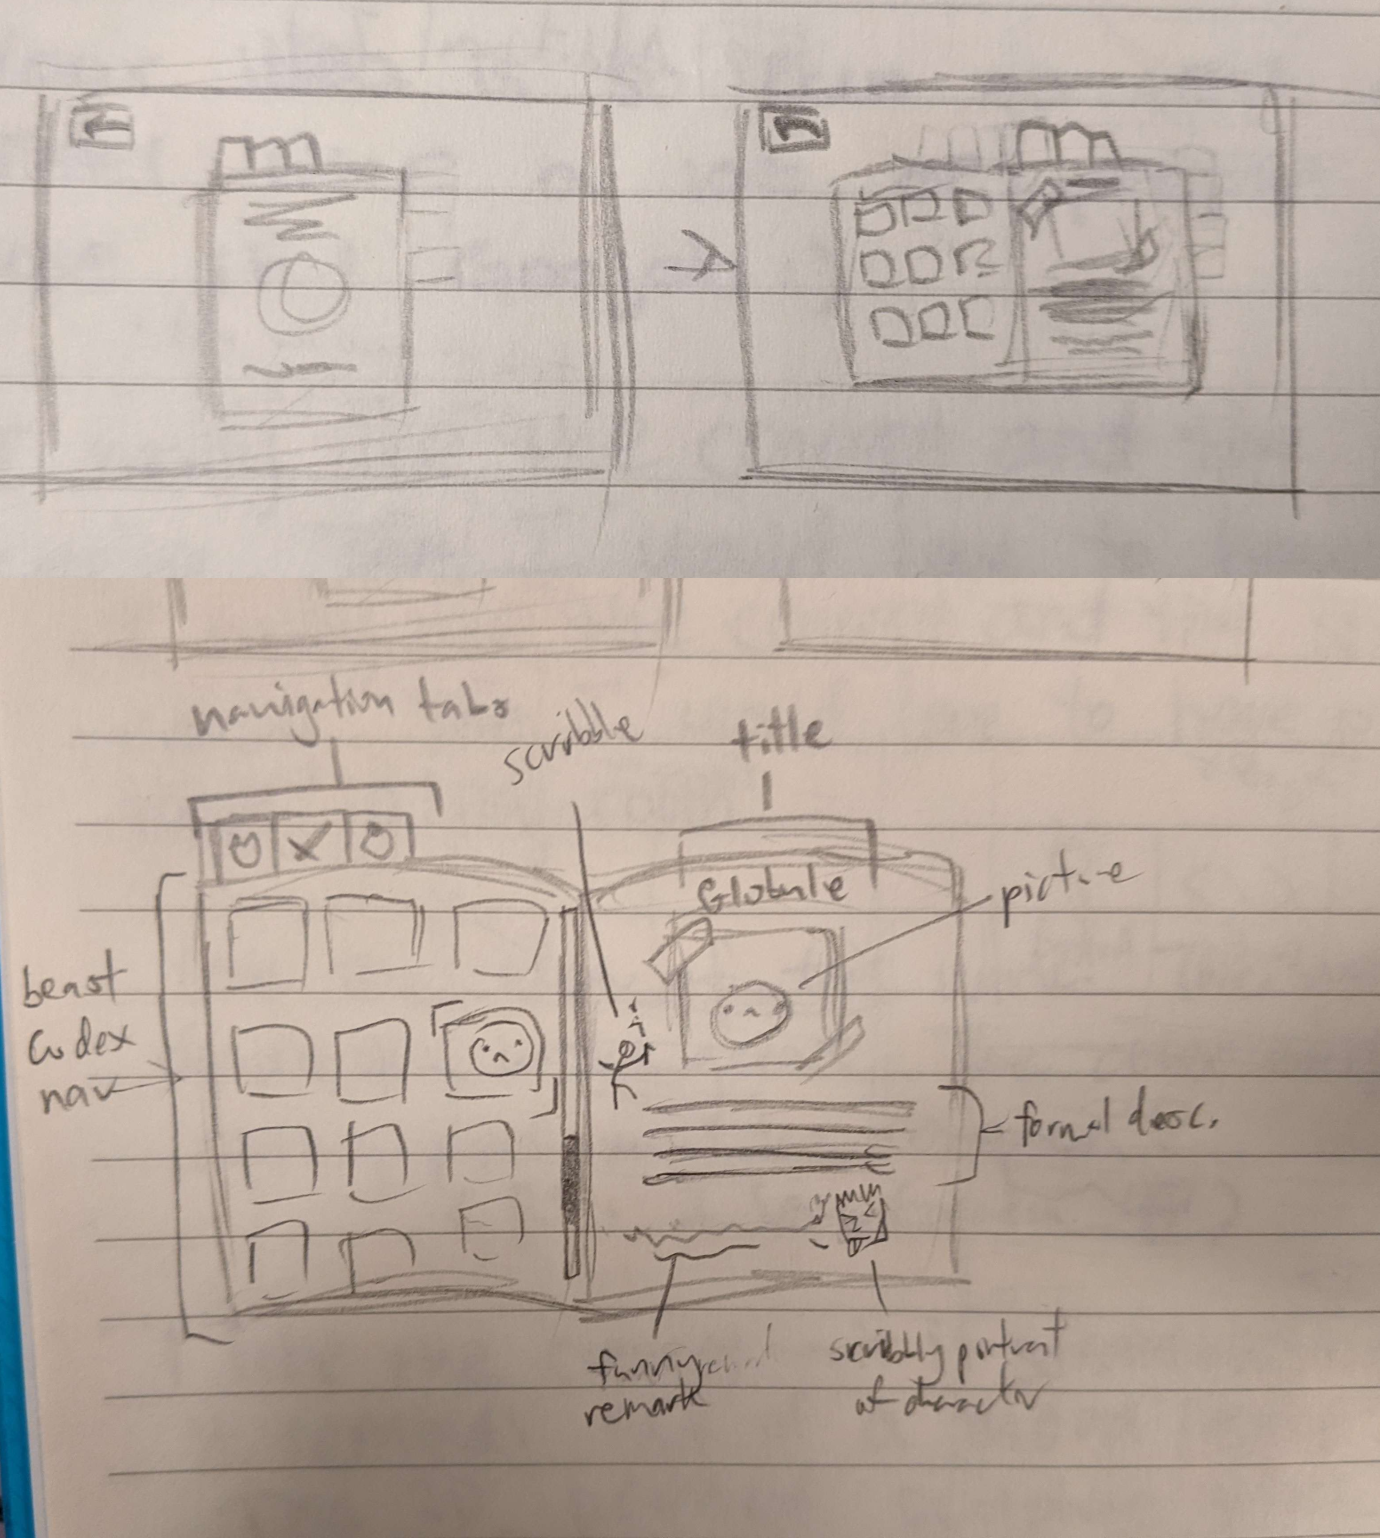 navigation tabs
scribble
title
Globule
picture
beast
codex
nav
formal desc.
funny
remark
scribbly portrait
of character